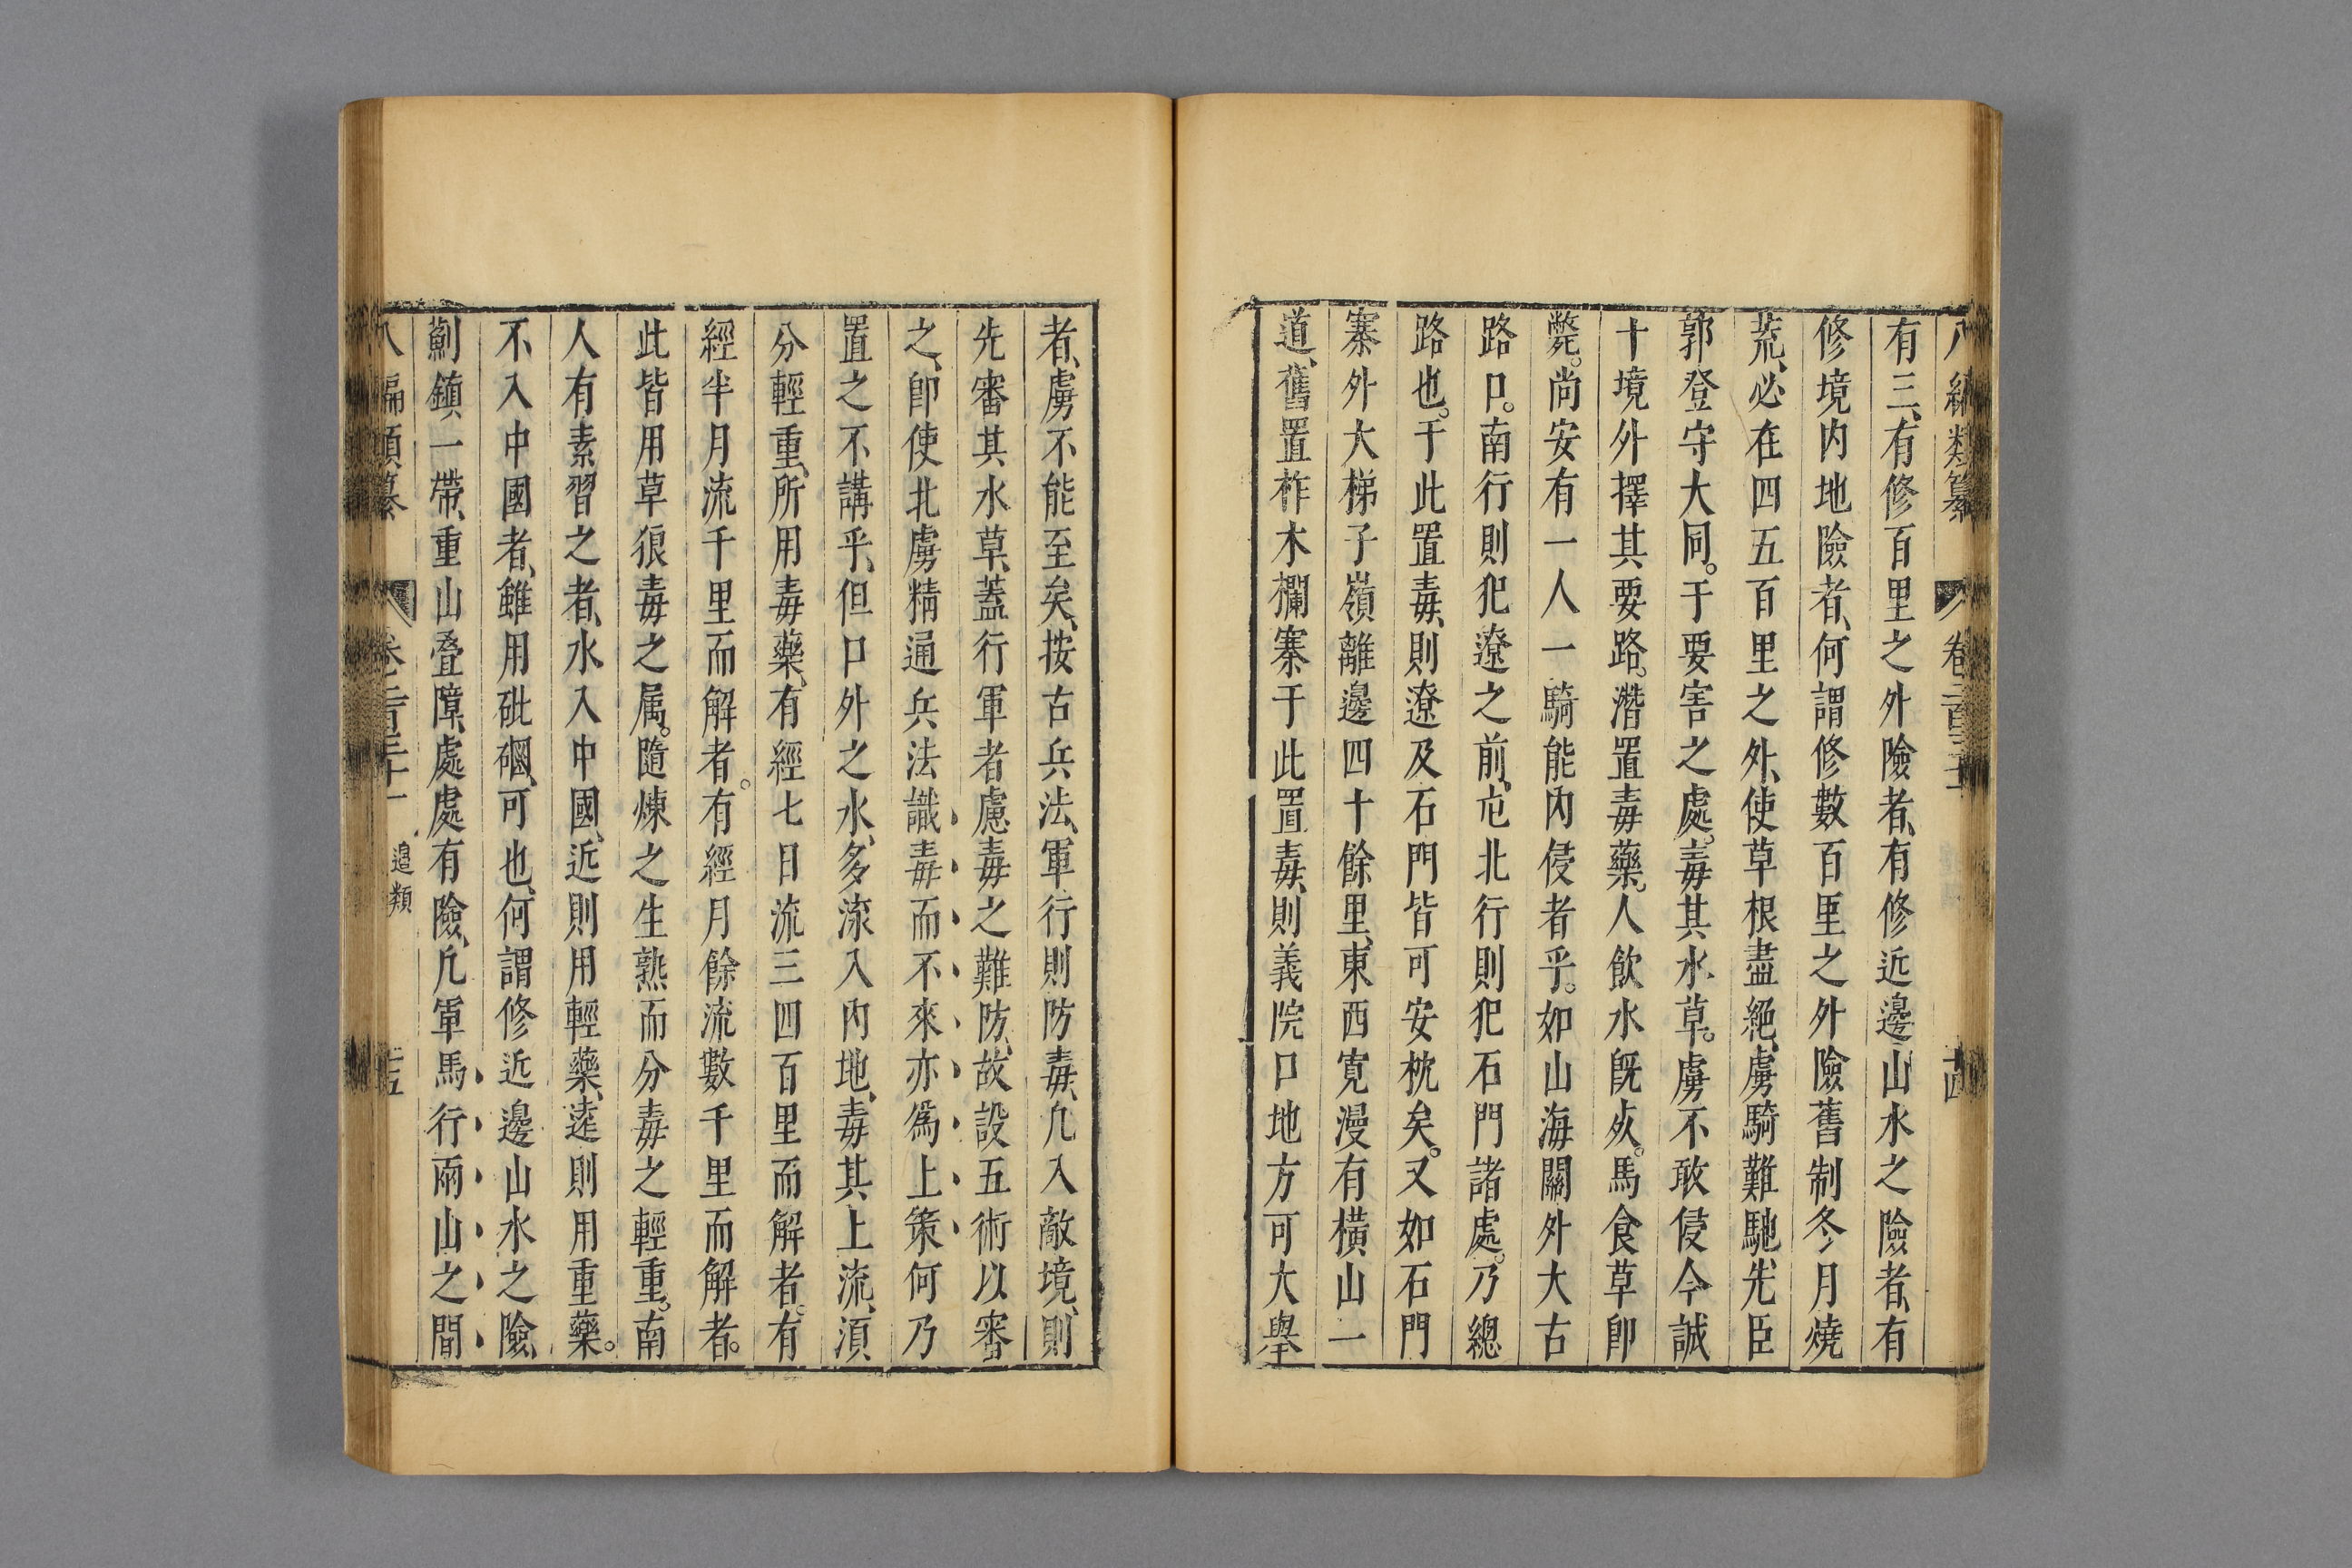 八編類纂 卷二百三十一 十四
有三、有修百里之外險者、有修近邊山水之險者、有
修境内地險者、何謂修數百里之外險舊制冬月燒
荒、必在四五百里之外、使草根盡絕、虜騎難馳、先臣
郭登守大同。于要害之處。毒其水草。虜不敢侵今誠
十境外擇其要路。潛置毒藥。人飲水既死。馬食草即
斃。尚安有一人一騎能內侵者乎。如山海關外大古
路口。南行則犯遼之前、屯北行則犯石門諸處。乃總
路也。于此置毒、則遼及石門皆可安枕矣。又如石門
寨外大梯子嶺離邊四十餘里、東西寬漫有橫山一
道、舊置柞木欄寨于此置毒、則義院口地方可大舉
者、虜不能至矣、按古兵法、軍行則防毒、凡入敵境、則
先審其水草、蓋行軍者慮毒之難防、故設五術以審
之、即使北虜精通兵法識毒而不來亦爲上策何乃
置之不講乎、但口外之水、多流入内地、毒其上流、湏
分輕重、所用毒藥、有經七日流三四百里而解者。有
經半月流千里而解者。有經月餘流數千里而解者。
此皆用草狼毒之属。隨煉之生熟而分毒之輕重。南
人有素習之者、水入中國、近則用輕藥、遠則用重藥。
不入中國者、雖用砒硇、可也、何謂修近邊山水之險、
薊鎮一帶、重山疊障、處處有險、凡軍馬行兩山之間
八編類纂 卷二百三十一 邊類 十五